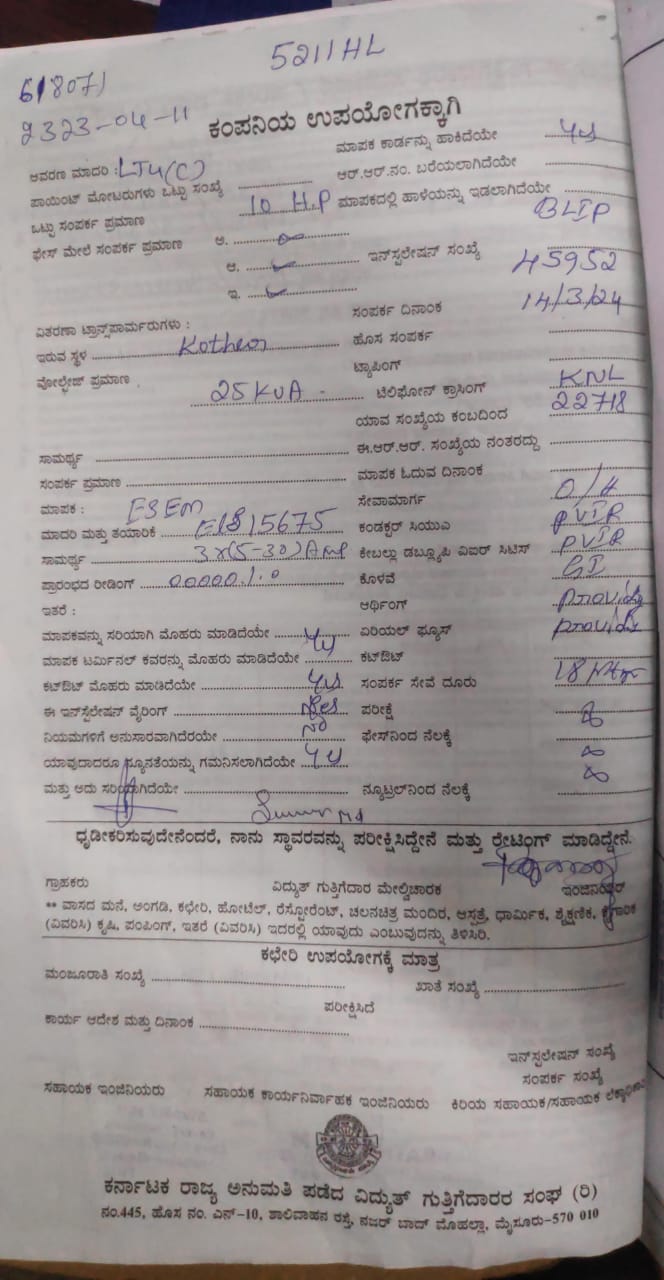 5211HL
61807)
2323-04-11
ಕಂಪನಿಯ ಉಪಯೋಗಕ್ಕಾಗಿ
ಮಾಪಕ ಕಾರ್ಡನ್ನು ಹಾಕಿದೆಯೇ
ಆವರಣ ಮಾದರಿ : LT4(C)
ಆರ್.ಆರ್.ನಂ. ಬರೆಯಲಾಗಿದೆಯೇ
ಪಾಯಿಂಟ್ ಮೋಟರುಗಳು ಒಟ್ಟು ಸಂಖ್ಯೆ
ಮಾಪಕದಲ್ಲಿ ಹಾಳೆಯನ್ನು ಇಡಲಾಗಿದೆಯೇ
ಒಟ್ಟು ಸಂಪರ್ಕ ಪ್ರಮಾಣ 10 H.P
ಫೇಸ್ ಮೇಲೆ ಸಂಪರ್ಕ ಪ್ರಮಾಣ ಅ.
ಆ. ಇನ್‌ಸ್ಟಲೇಷನ್ ಸಂಖ್ಯೆ BLIP 45952
ಇ. ಸಂಪರ್ಕ ದಿನಾಂಕ 14/3/24
ವಿತರಣಾ ಟ್ರಾನ್ಸ್‌ಪಾರ್ಮರುಗಳು :
ಹೊಸ ಸಂಪರ್ಕ
ಇರುವ ಸ್ಥಳ
ಟ್ಯಾಪಿಂಗ್
ವೋಲ್ಟೇಜ್ ಪ್ರಮಾಣ 25 KVA
ಟೆಲಿಫೋನ್ ಕ್ರಾಸಿಂಗ್
ಯಾವ ಸಂಖ್ಯೆಯ ಕಂಬದಿಂದ KNL 22718
ಸಾಮರ್ಥ್ಯ
ಈ.ಆರ್.ಆರ್. ಸಂಖ್ಯೆಯ ನಂತರದ್ದು
ಸಂಪರ್ಕ ಪ್ರಮಾಣ
ಮಾಪಕ ಓದುವ ದಿನಾಂಕ
ಮಾಪಕ :
ಸೇವಾಮಾರ್ಗ O/H
ಮಾದರಿ ಮತ್ತು ತಯಾರಿಕೆ
ಕಂಡಕ್ಟರ್ ಸಿಯುಎ PVIR
ಸಾಮರ್ಥ್ಯ 3x(5-30)Amp
ಕೇಬಲ್ಲು ಡಬ್ಲ್ಯೂಪಿ ವಿಐರ್ ಸಿಟಿಸ್ PVIR
ಪ್ರಾರಂಭದ ರೀಡಿಂಗ್ 00000.1.0
ಕೊಳವೆ GI
ಇತರೆ :
ಅರ್ಥಿಂಗ್
ಮಾಪಕವನ್ನು ಸರಿಯಾಗಿ ಮೊಹರು ಮಾಡಿದೆಯೇ
ಏರಿಯಲ್ ಫ್ಯೂಸ್
ಮಾಪಕ ಟರ್ಮಿನಲ್ ಕವರನ್ನು ಮೊಹರು ಮಾಡಿದೆಯೇ
ಕಟ್‌ಔಟ್
ಕಟ್‌ಔಟ್ ಮೊಹರು ಮಾಡಿದೆಯೇ
ಸಂಪರ್ಕ ಸೇವೆ ದೂರು
ಈ ಇನ್‌ಸ್ಟಲೇಷನ್ ವೈರಿಂಗ್ Yes
ಪರೀಕ್ಷೆ
ನಿಯಮಗಳಿಗೆ ಅನುಸಾರವಾಗಿದೆರಯೇ No
ಫೇಸ್‌ನಿಂದ ನೆಲಕ್ಕೆ
ಯಾವುದಾದರೂ ನ್ಯೂನತೆಯನ್ನು ಗಮನಿಸಲಾಗಿದೆಯೇ
ಮತ್ತು ಅದು ಸರಿಯಾಗಿದೆಯೇ
ನ್ಯೂಟ್ರಲ್‌ನಿಂದ ನೆಲಕ್ಕೆ
ಧೃಡೀಕರಿಸುವುದೇನೆಂದರೆ, ನಾನು ಸ್ಥಾವರವನ್ನು ಪರೀಕ್ಷಿಸಿದ್ದೇನೆ ಮತ್ತು ರೇಟಿಂಗ್ ಮಾಡಿದ್ದೇನೆ.
ಗ್ರಾಹಕರು ವಿದ್ಯುತ್ ಗುತ್ತಿಗೆದಾರ ಮೇಲ್ವಿಚಾರಕ ಇಂಜಿನಿಯರ್
** ವಾಸದ ಮನೆ, ಅಂಗಡಿ, ಕಛೇರಿ, ಹೋಟೆಲ್, ರೆಸ್ಟೋರೆಂಟ್, ಚಲನಚಿತ್ರ ಮಂದಿರ, ಆಸ್ಪತ್ರೆ, ಧಾರ್ಮಿಕ, ಶೈಕ್ಷಣಿಕ, ಕೈಗಾರಿಕ
(ವಿವರಿಸಿ) ಕೃಷಿ, ಪಂಪಿಂಗ್, ಇತರೆ (ವಿವರಿಸಿ) ಇದರಲ್ಲಿ ಯಾವುದು ಎಂಬುವುದನ್ನು ತಿಳಿಸಿರಿ.
ಕಛೇರಿ ಉಪಯೋಗಕ್ಕೆ ಮಾತ್ರ
ಮಂಜೂರಾತಿ ಸಂಖ್ಯೆ ಖಾತೆ ಸಂಖ್ಯೆ
ಪರೀಕ್ಷಿಸಿದೆ
ಕಾರ್ಯ ಆದೇಶ ಮತ್ತು ದಿನಾಂಕ
ಇನ್‌ಸ್ಟಲೇಷನ್ ಸಂಖ್ಯೆ
ಸಂಪರ್ಕ ಸಂಖ್ಯೆ
ಸಹಾಯಕ ಇಂಜಿನಿಯರು ಸಹಾಯಕ ಕಾರ್ಯನಿರ್ವಾಹಕ ಇಂಜಿನಿಯರು ಕಿರಿಯ ಸಹಾಯಕ/ಸಹಾಯಕ
ಕರ್ನಾಟಕ ರಾಜ್ಯ ಅನುಮತಿ ಪಡೆದ ವಿದ್ಯುತ್ ಗುತ್ತಿಗೆದಾರರ ಸಂಘ (ರಿ)
ನಂ.445, ಹೊಸ ನಂ. ಎನ್-10, ಶಾಲಿವಾಹನ ರಸ್ತೆ, ನಜರ್ ಬಾದ್ ಮೊಹಲ್ಲಾ, ಮೈಸೂರು-570 010